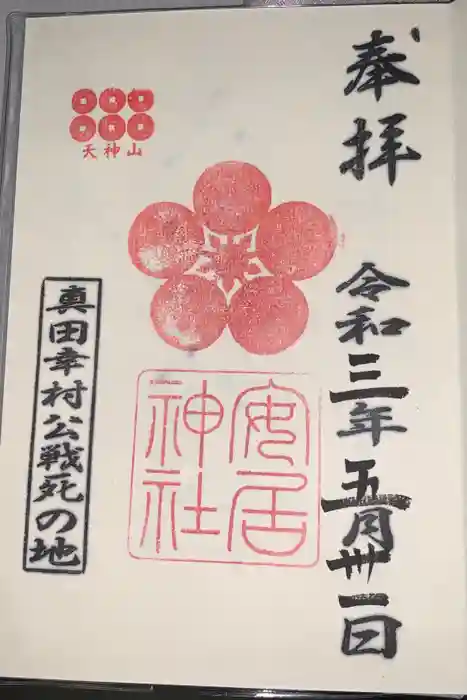 奉拝
令和三年五月卅一日
安居
神社
天神山
真田幸村公戦死の地